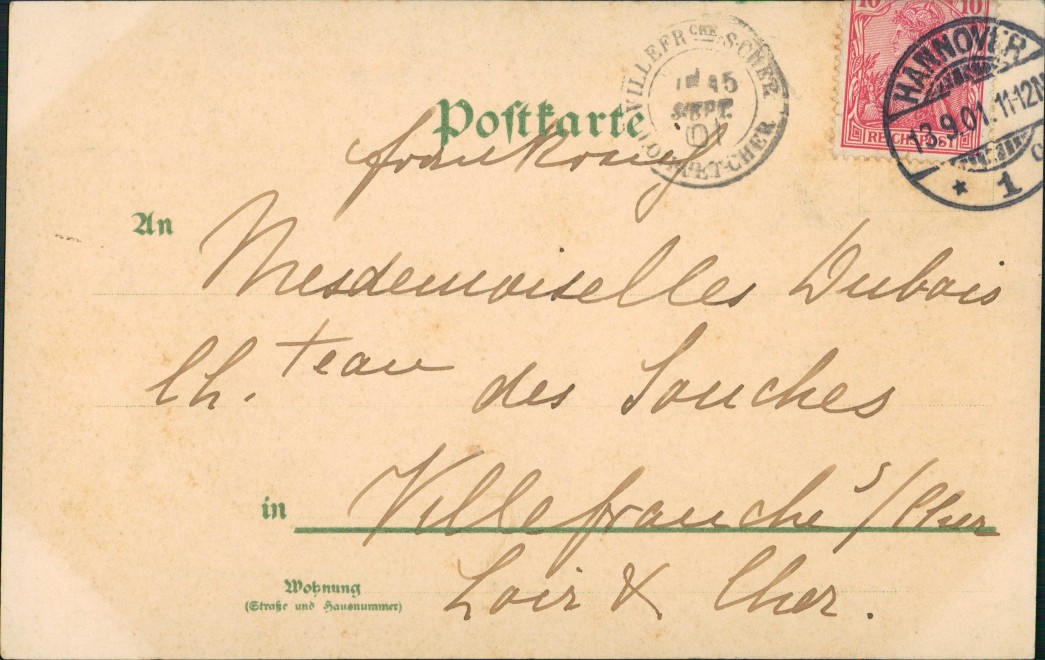 10 10
REICHSPOST
HANNOVER
13.9.01. 11-12N
* 1
VILLEFRCHE S-CHER
15
SEPT.
01
LOIR-ET-CHER
Postkarte
An
Mesdemoiselles Dubois
Ch.teau des Souches
in Villefranche s/Cher
Wohnung
(Straße und Hausnummer)
Loir & Cher.